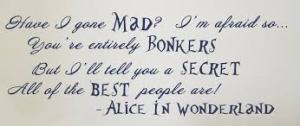 Have I gone MAD? I'm afraid so...
You're entirely BONKERS
But I'll tell you a SECRET
All of the BEST people are!
- ALICE IN WONDERLAND